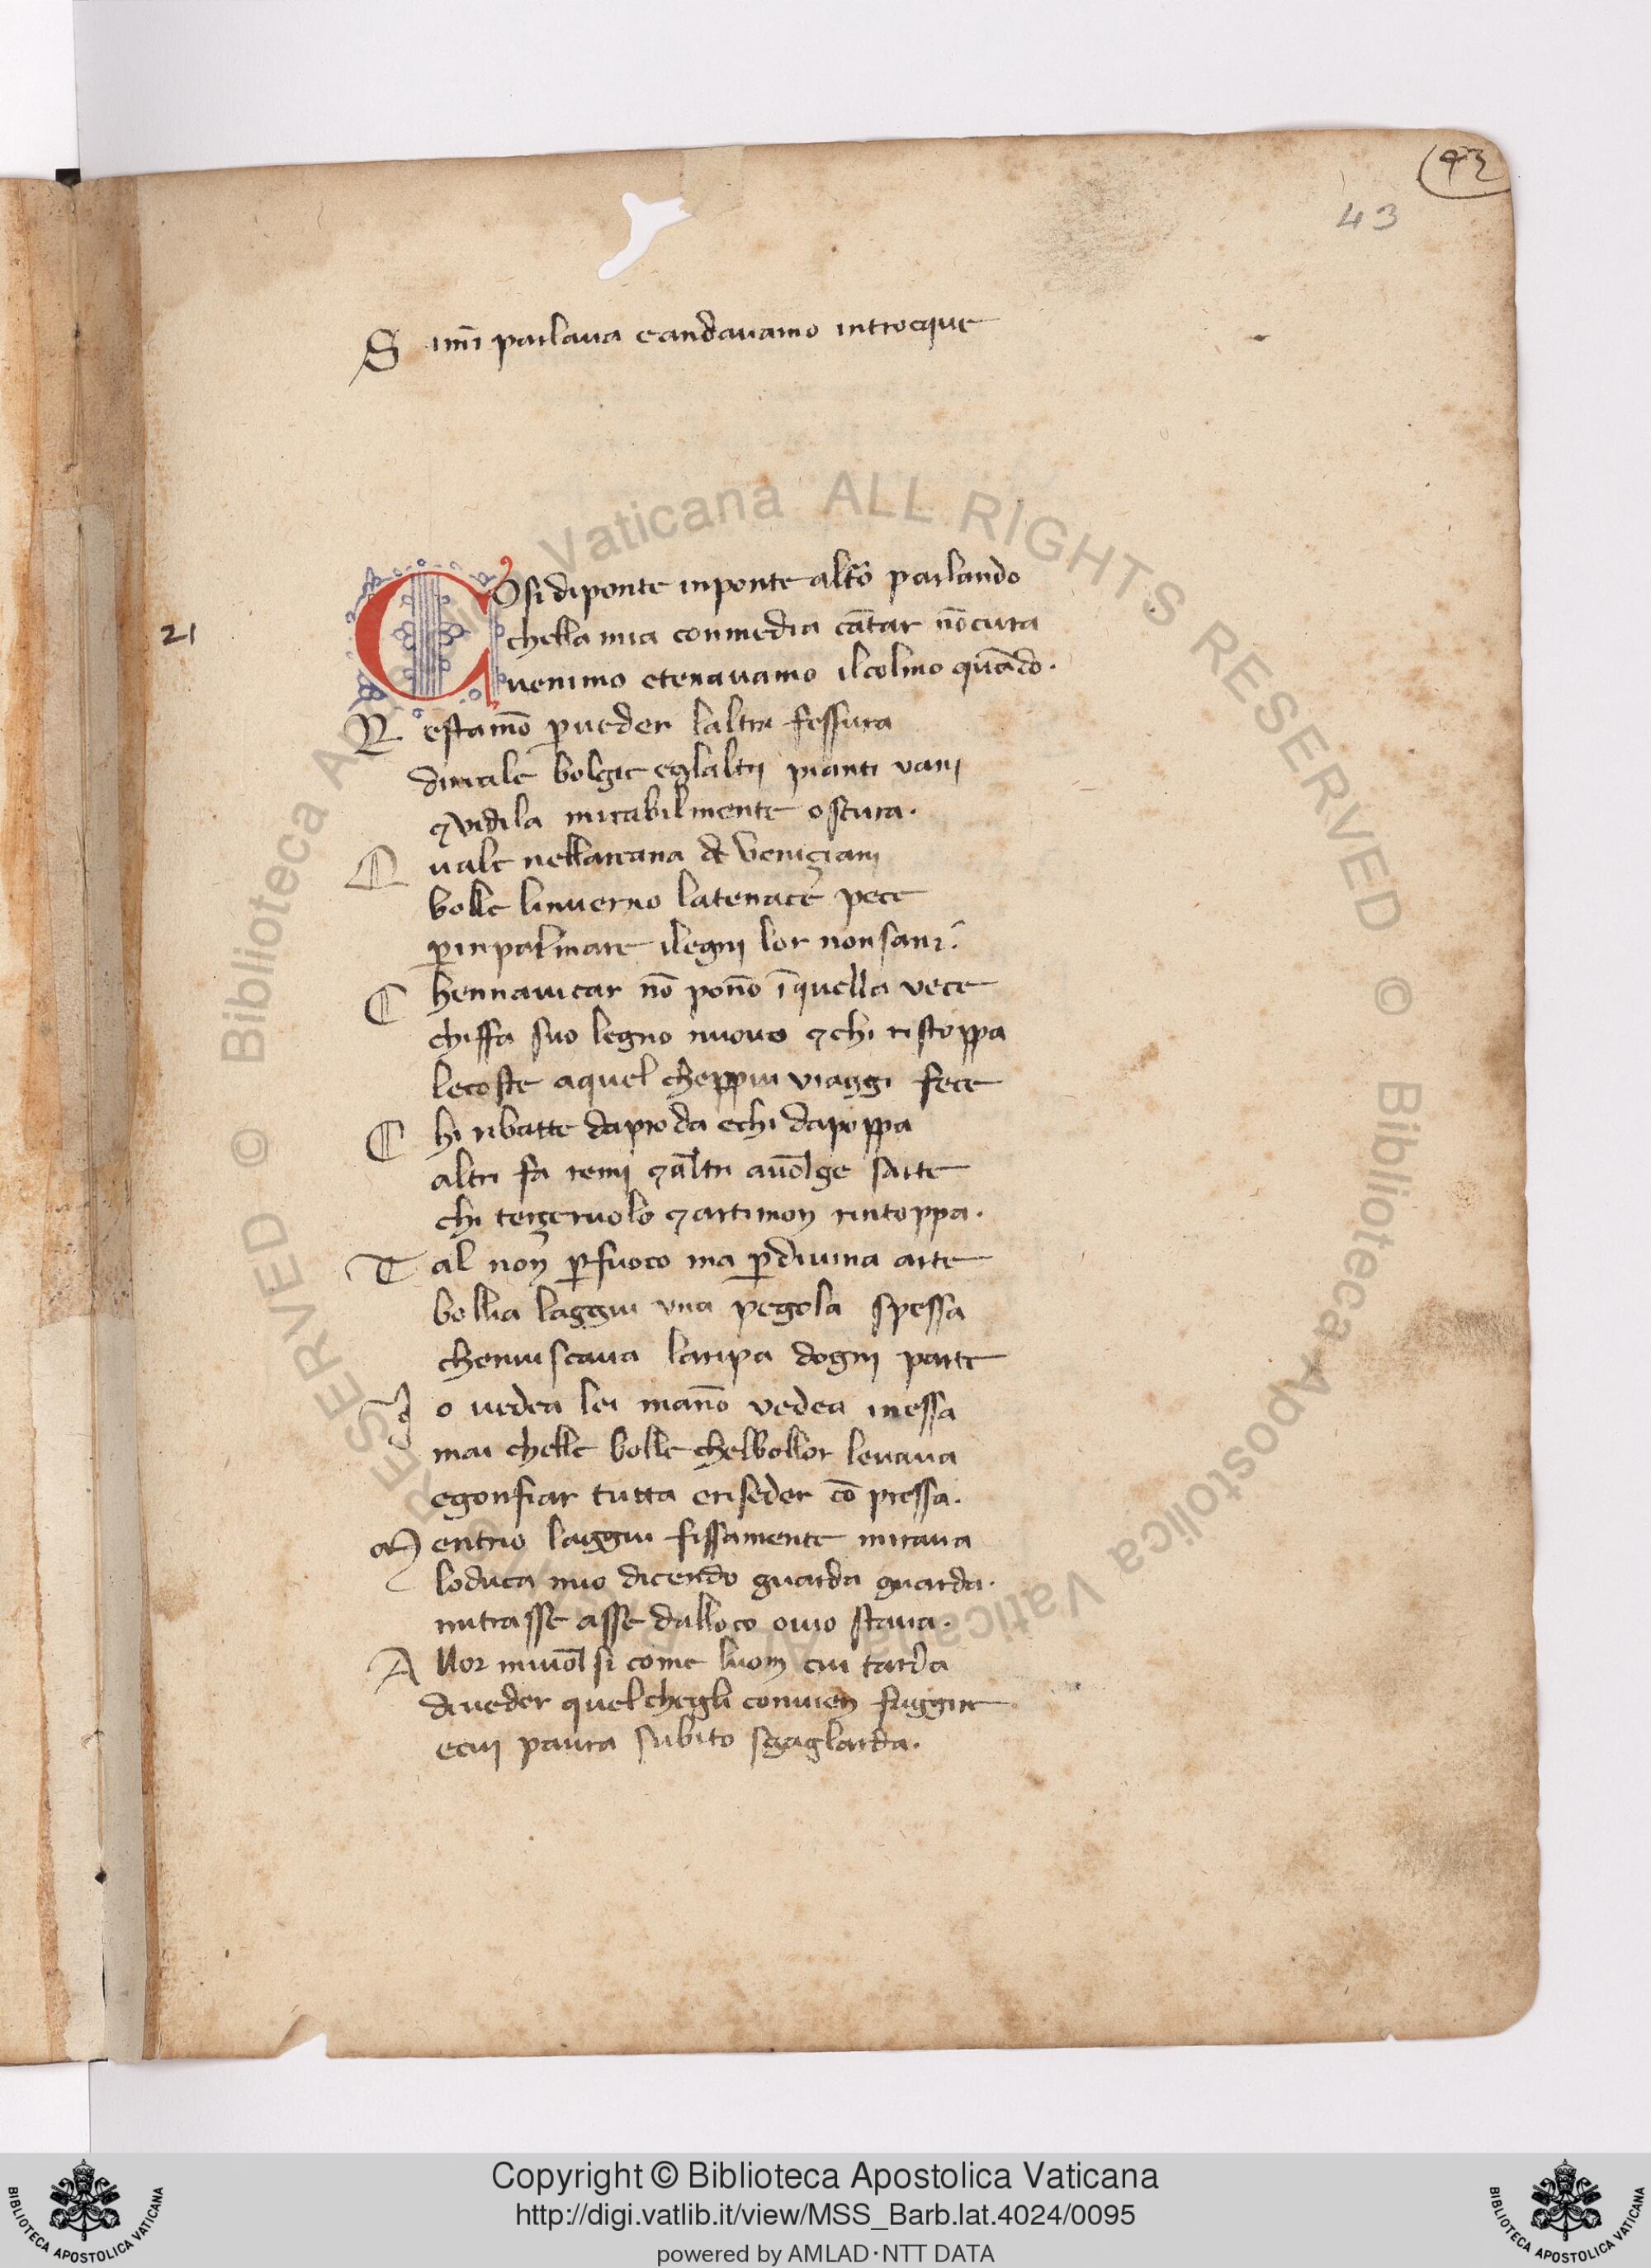 43
43
S imi parlaua eandauamo introcque
21
Cosi diponte inponte altro parlando
chella mia conmedia cātar nōcura
uenimo etenauamo ilcolmo quādo.
R estamō pueder laltra fessura
dimale bolgie eglaltri pianti vani
⁊vidila mirabilmente oscura.
Q uale nellarzana de Veniziani
bolle linuerno latenace pece
pinpalmare ilegni lor nonsani.
C hennauicar nō ponō īquella vece
chiffa suo legno nuouo ⁊chi ristoppa
lecoste aquel cheppiu viaggi fece
C hi ribatte daproda echi dapoppa
altri fa remi ⁊altri auolge sarte
chi terzeruolo ⁊artimon rintoppa.
T al non pfuoco ma pdiuina arte
bollia laggiu vna pegola spessa
cheniuiscaua laripa dogni parte
I o uedea lei manō vedea inessa
mai chelle bolle chelbollor leuaua
egonfiar tutta eriseder cō pressa.
M entrio laggiu fissamente miraua
loduca mio dicendo guarda guarda.
mitrasse asse dalloco ouio staua.
A llor miuolsi come luom cui tarda
diueder quelchegli conuien fuggire
ecui paura subito sgaglarda.
© Biblioteca Apostolica Vaticana ALL RIGHTS RESERVED © Biblioteca Apostolica Vaticana ALL RIGHTS RESERVED
Copyright © Biblioteca Apostolica Vaticana
http://digi.vatlib.it/view/MSS_Barb.lat.4024/0095
powered by AMLAD·NTT DATA
BIBLIOTECA APOSTOLICA VATICANA
BIBLIOTECA APOSTOLICA VATICANA